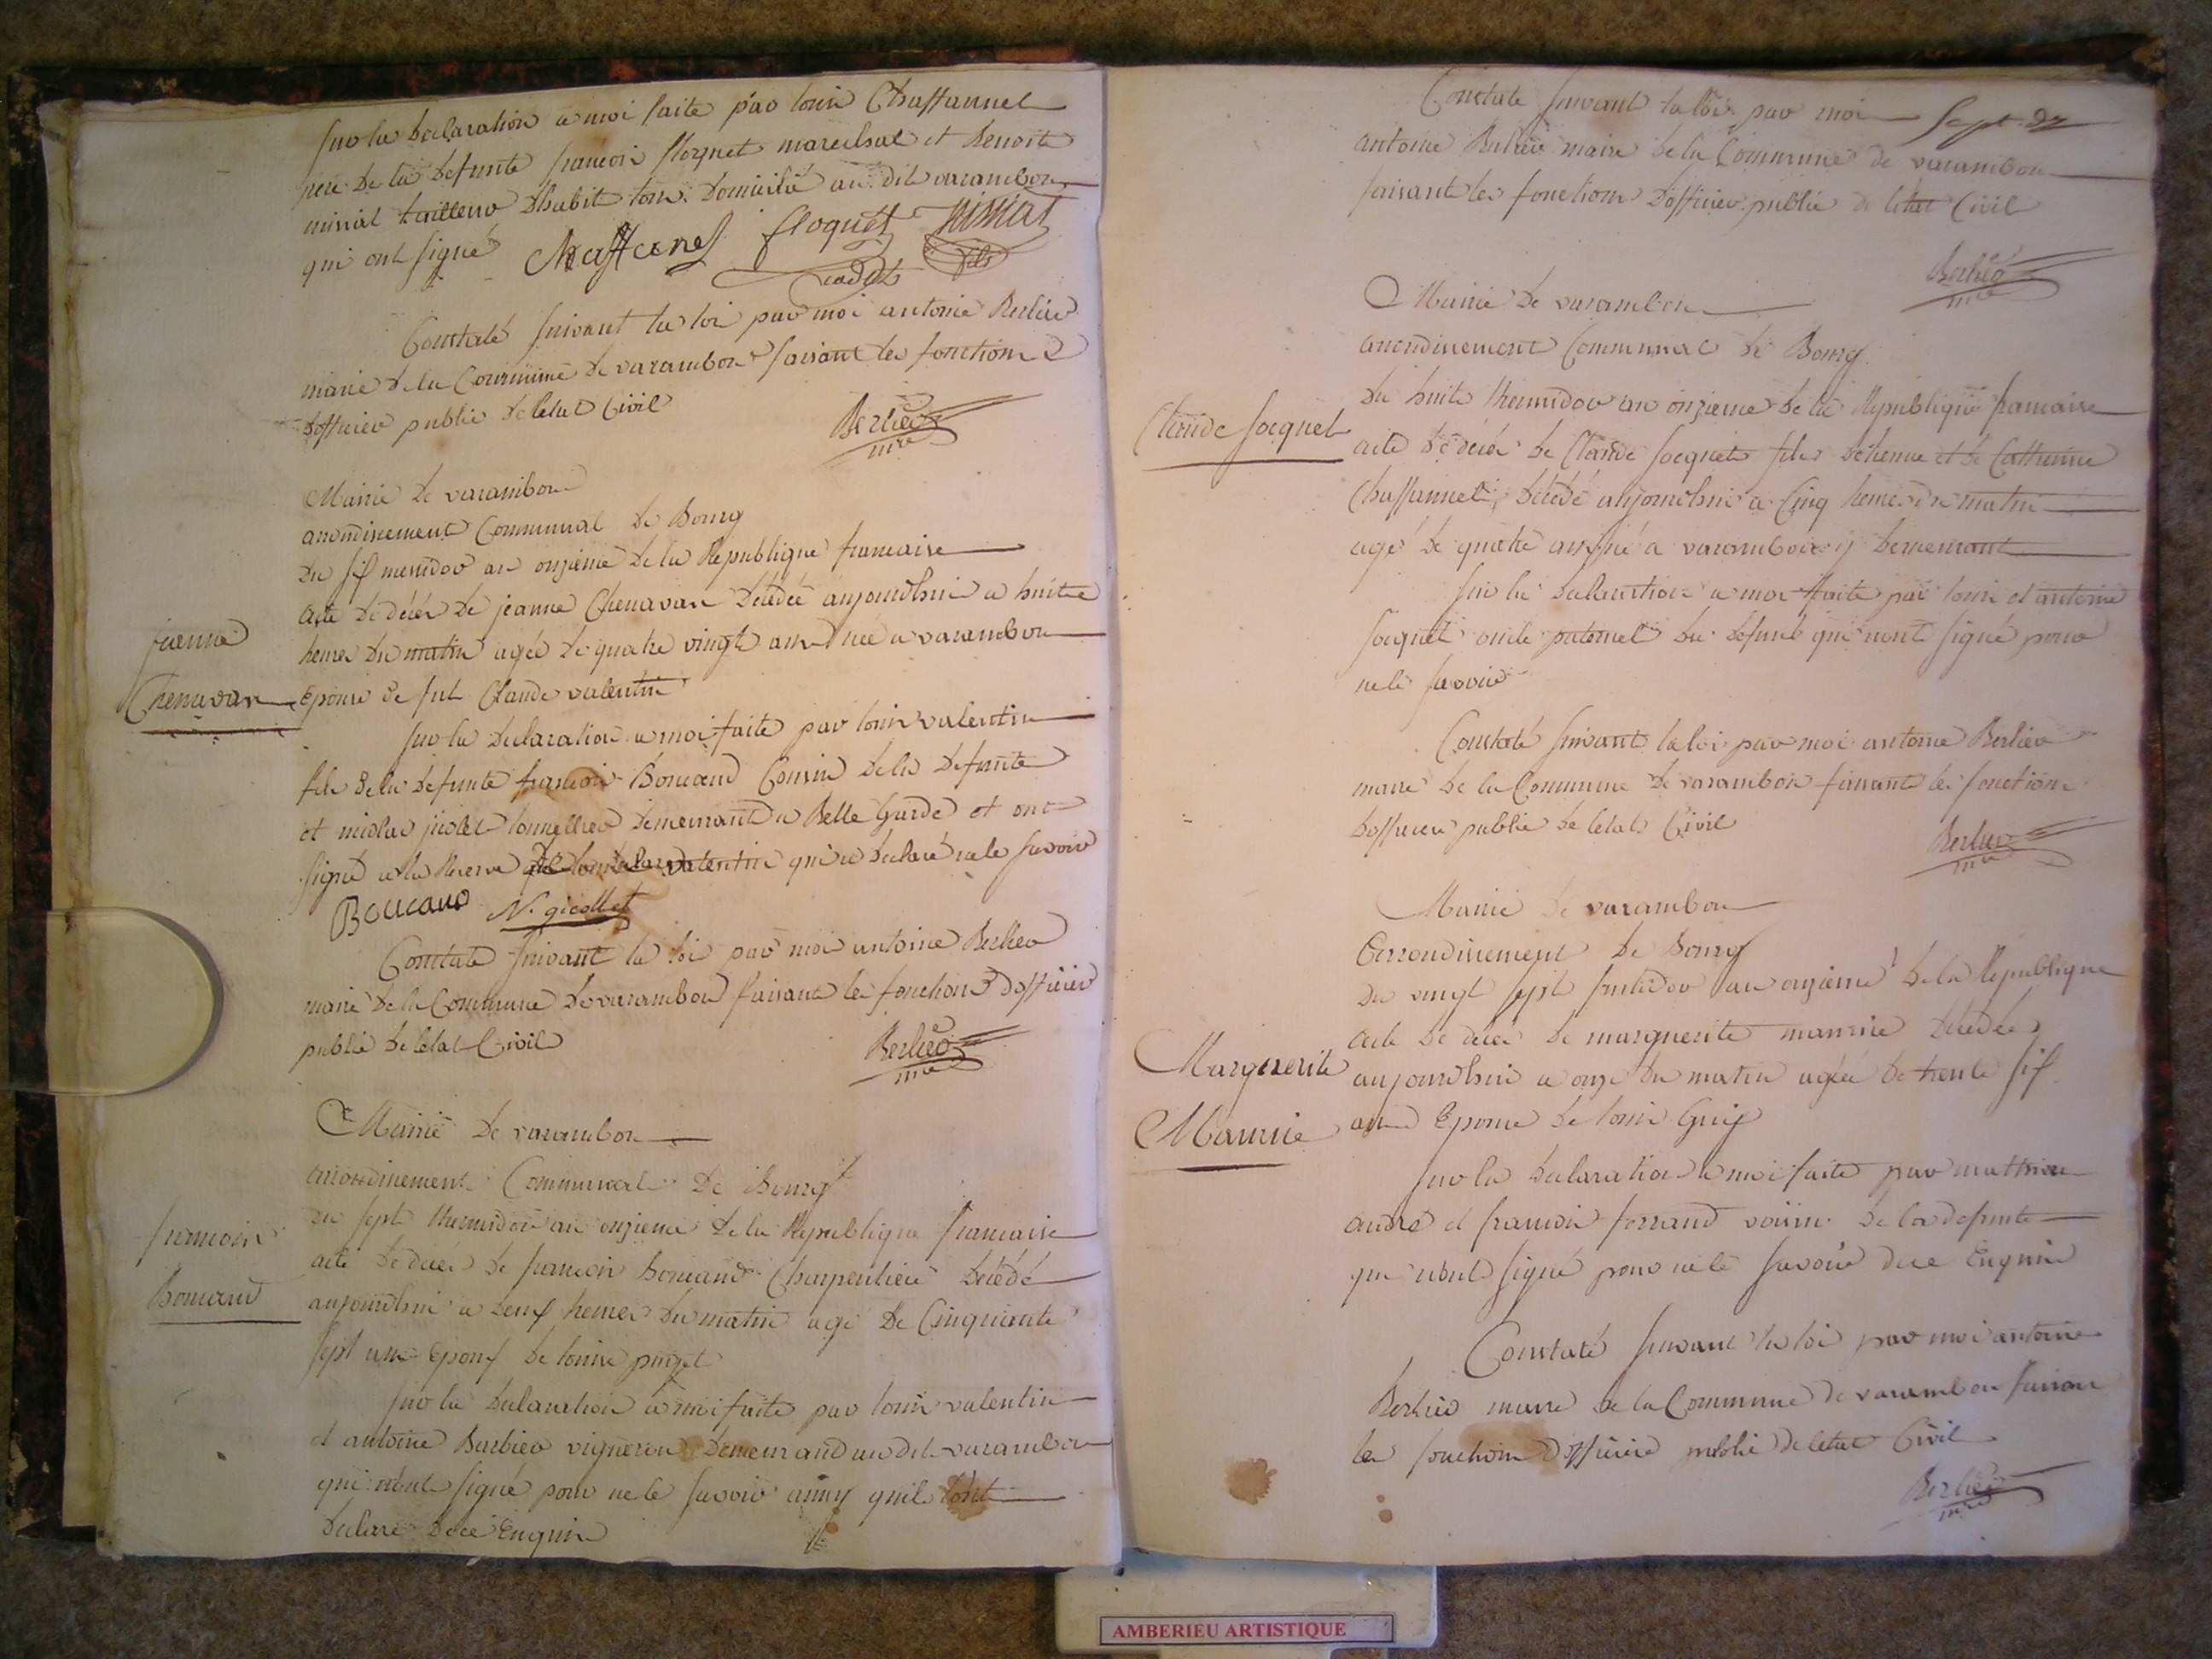 sur la declaration a moi faite par louis Chaffannel
pere de la defunte francois floquet marechal et Benoite
tailleur dhabit tous domicilié au dit varambon
qui ont signé Chaffanel floquet
cadet fils
Constaté suivant la loi par moi antoine Berlier
maire de la Commune de varambon faisant les fonctions
dofficier public de letat Civil
Berlier
mre
Mairie de varambon
arrondissement Communal de Bourg
du six messidor an onzieme de la Republique francaise
acte de décés de jeanne Chenavan décédée aujourdhui a huit
heures du matin agée de quatre vingt ans née a varambon
jeanne
Chenavan
Epouse de fut Claude valentin
sur la declaration a moi faite par louis valentin
fils de la defunte francois Boucand Cousin de la defunte
et nicolas jicolet tonnellier demeurant a Belle Garde et ont
signé a la Reserve de louis valentin qui a declaré ne le savoir
Boucand N. gicollet
Constaté suivant la loi par moi antoine Berlier
maire de la Commune de varambon faisant les fonctions dofficier
public de letat Civil
Berlier
mre
Mairie de varambon
arrondissement Communal de Bourg
du sept thermidor an onzieme de la Republique francaise
francois
Boucand
acte de décés de francois Boucand Charpentier décédé
aujourdhui a neuf heures du matin agé de Cinquante
sept ans Epoux de louise
sur la declaration a moi faite par louis valentin
et antoine Barbier vigneron demeurand au dit varambon
qui nont signé pour ne le savoir ainsy quils lont
declaré de ce Enquis
Constaté suivant la loi par moi sept
antoine Berlier maire de la Commune de varambon
faisant les fonctions dofficier public de letat Civil
Berlier
mre
Mairie de varambon
arrondissement Communal de Bourg
du huit thermidor an onzieme de la Republique francaise
Claude Socquet
acte de décés de Claude Socquet fils détienne et de Catherine
Chaffannel, décédé aujourdhui a Cinq heures du matin
agé de quatre ans né a varambon y demeurant
sur la declaration a moi faite par louis et antoine
Socquet oncle paternel du defunt qui nont signé pour
ne le savoir
Constaté suivant la loi par moi antoine Berlier
maire de la Commune de varambon faisant les fonctions
dofficier public de letat Civil
Berlier
mre
Mairie de varambon
arrondissement de Bourg
du vingt sept fructidor an onzieme de la Republique
acte de décés de marguerite maurice décédée
Marguerite
Maurice
aujourdhui a onze du matin agée de trente six
ans Epouse de louis Guy
sur la declaration a moi faite par mathieu
andré et francois ferrand voisin de la defunte
qui nont signé pour ne le savoir de ce Enquis
Constaté suivant la loi par moi antoine
Berlier maire de la Commune de varambon faisant
les fonctions dofficier public de letat Civil
Berlier
mre
AMBERIEU ARTISTIQUE